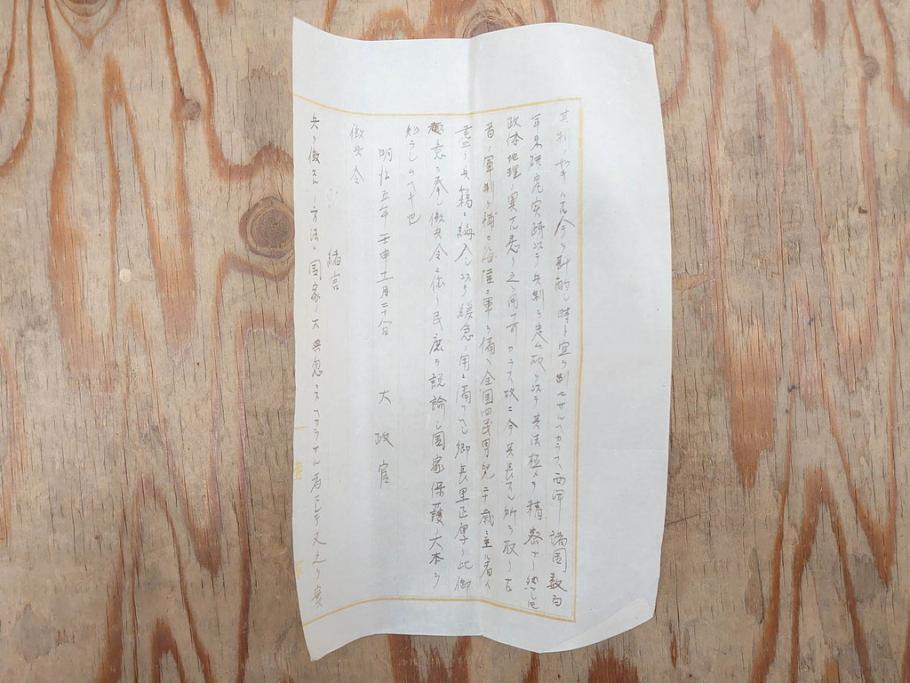 古今ヲ斟酌シ時ト宜ヲ制セサルヘカラス西洋ノ諸国数百
年来研究実践以テ兵制ヲ定ム故ヲ以テ其法極メテ精密ナリ然レ𪜈
政体地理ノ異ナル悉ク之ヲ用フ可カラス故ニ今其長スル所ヲ取リ古
昔ノ軍制ヲ補ヒ海陸二軍ヲ備ヘ全国四民男児二十歳ニ至ル者ハ
尽ク兵籍ニ編入シ以テ緩急ノ用ニ備フヘシ郷長里正厚ク此御
趣意ヲ奉シ徴兵令ニ依リ民庶ヲ説諭シ国家保護ノ大本ヲ
知ラシムヘキ也
明治五年壬申十一月二十八日 大政官
徴兵令
緒言
兵ヲ徴スルノ方法ハ国家ノ大典忽ニスヘカラサル者ニシテ又之ヲ実